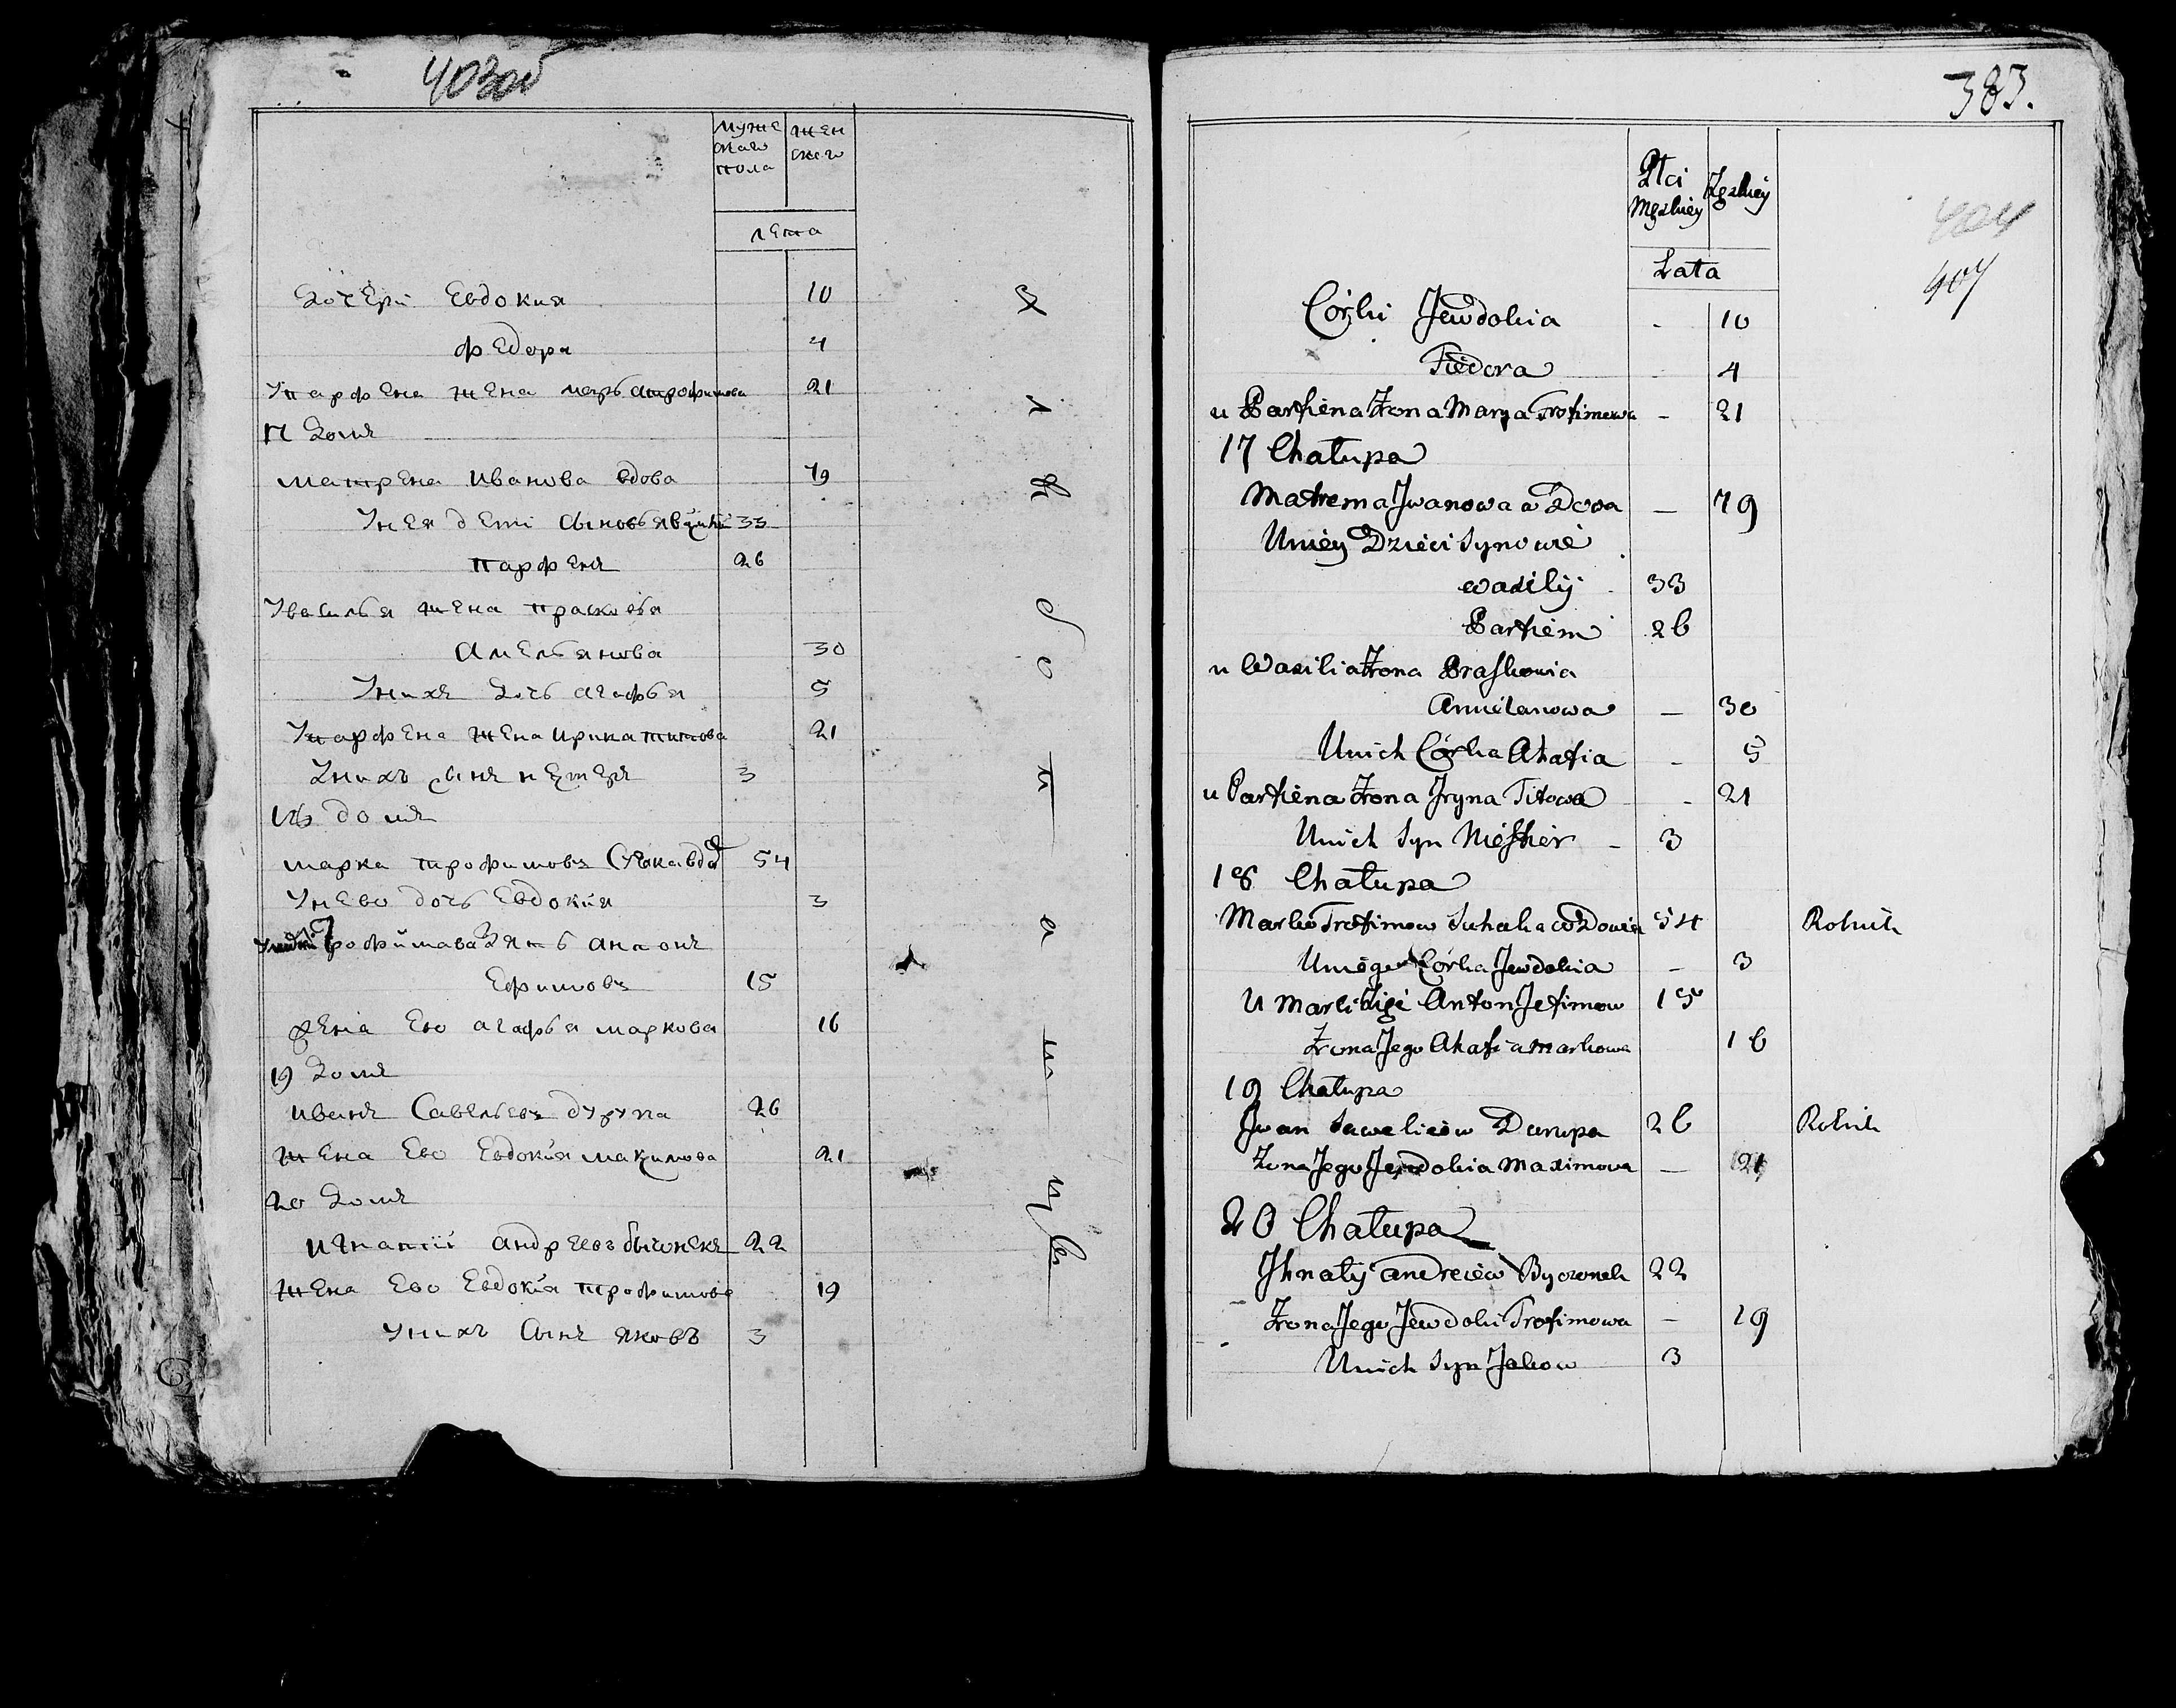 403об
муже
скаго
пола
жен
скаго
лета
Дочери Евдокия 10
Федора 4
У парфена жена марья трофимова 21
17 Домъ
матрена Иванова вдова 79
У нея дети сыновья василий 33
парфенъ 26
У василья жена прасковья
Амельянова 30
У них дочь агафья 5
У парфена жена ирина титова 21
У нихъ сынъ нестеръ 3
18 домъ
марка трофимовъ Сукака вдов 54
У нево дочь Евдокия 3
трофимова Зять антонъ
Ефимовъ 15
жена Ево агафья маркова 16
19 Домъ
иванъ Савельевъ дурупа 26
жена Ево Евдокия максимова 21
20 Домъ
игнатий андреевъ бычонекъ 22
жена Ево Евдокия трофимова 19
У нихъ Сынъ яковъ 3
383.
404
407
Płci
Męzkiey
Zęzkiey
Lata
Córki Jewdokia - 10
Fiedora - 4
u Parfiena Żona Marya Trofimowa - 21
17 Chałupa
Matrema Jwanowa a Dova — 79
U niey Dzieci Synowie
Wasilij 33
Parfiem 26
u Wasilia Żona Praskowia
Amielanowa — 30
U nich Córka Ahafia - 5
u Parfiena Żona Jryna Titowa - 21
U nich Syn Niestier - 3
18 Chałupa
Marko Trofimow Suhaka wdowiec 54 Rolnik
U niego Córka Jewdokia - 3
U Marki Zięć Anton Jefimow 15
Żona Jego Ahafia Markowa 16
19 Chałupa
Jwan Saweliiew Durupa 26 Rolnik
Żona Jego Jewdokia Maximova — 21
20 Chałupa
Jhnatij Andreiew Byczonek 22
Żona Jego Jewdoki Trofimowa — 19
U nich Syn Jakow 3